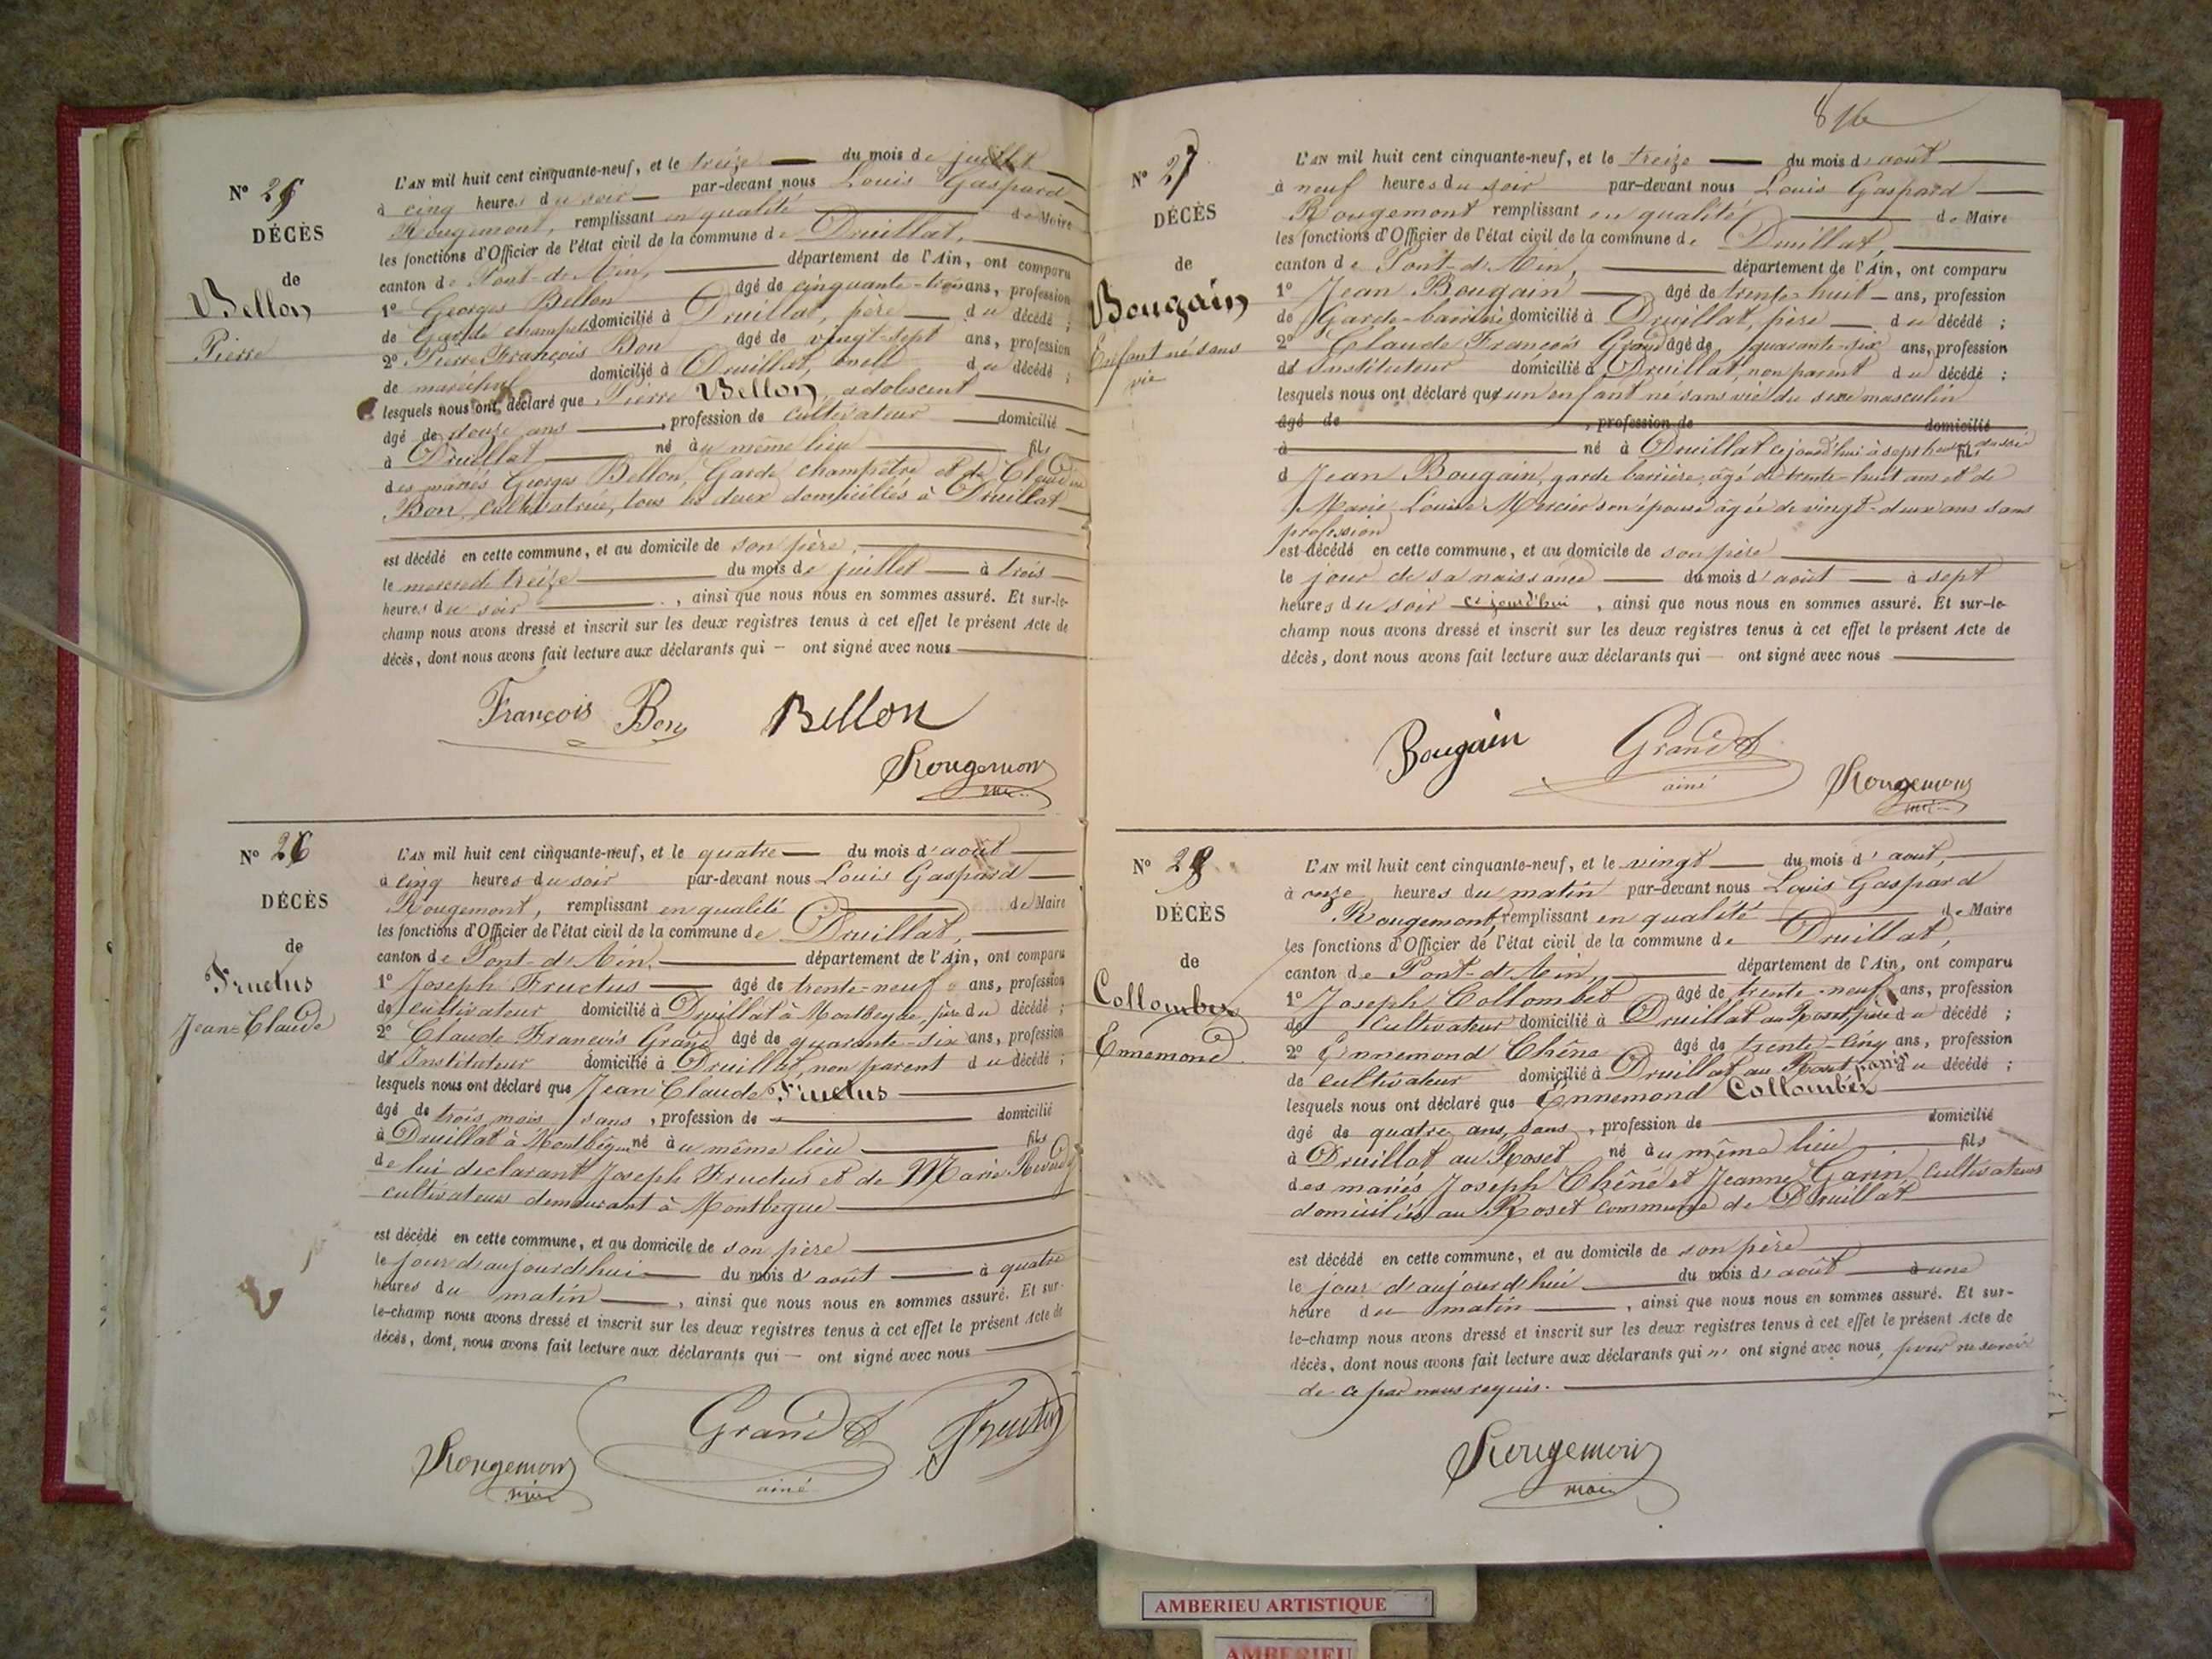 Nº 25
DÉCÈS
de
Bellon
Pierre
L'AN mil huit cent cinquante-neuf, et le treize du mois de juillet
à cinq heures du soir par-devant nous Louis Gaspard
Rougemont, remplissant en qualité de Maire
les fonctions d'Officier de l'état civil de la commune de Druillat,
canton de Pont-d'Ain, département de l'Ain, ont comparu
1º Georges Bellon âgé de cinquante-trois ans, profession
de Garde champêtre domicilié à Druillat, père du décédé ;
2º Pierre François Bon âgé de vingt-sept ans, profession
de maréchal domicilié à Druillat, oncle du décédé ;
lesquels nous ont déclaré que Pierre Bellon, adolescent
âgé de douze ans, profession de cultivateur domicilié
à Druillat né au même lieu fils
des mariés Georges Bellon, Garde champêtre et de Claudine
Bon, cultivatrice, tous les deux domiciliés à Druillat
est décédé en cette commune, et au domicile de son père,
le mercredi treize du mois de juillet à trois
heures du soir, ainsi que nous nous en sommes assuré. Et sur-le-
champ nous avons dressé et inscrit sur les deux registres tenus à cet effet le présent Acte de
décès, dont nous avons fait lecture aux déclarants qui — ont signé avec nous
François Bon Bellon
Rougemont
Nº 26
DÉCÈS
de
Fructus
Jean-Claude
L'AN mil huit cent cinquante-neuf, et le quatre du mois d'août
à cinq heures du soir par-devant nous Louis Gaspard
Rougemont, remplissant en qualité de Maire
les fonctions d'Officier de l'état civil de la commune de Druillat,
canton de Pont-d'Ain, département de l'Ain, ont comparu
1º Joseph Fructus âgé de trente-neuf ans, profession
de cultivateur domicilié à Druillat à Montbegue, père du décédé ;
2º Claude François Grand âgé de quarante-six ans, profession
d'Instituteur domicilié à Druillat, non parent du décédé ;
lesquels nous ont déclaré que Jean Claude Fructus
âgé de trois mois, sans, profession de domicilié
à Druillat à Montbègue né au même lieu fils
de lui déclarant Joseph Fructus et de Marie
cultivateurs demeurant à Montbegue
est décédé en cette commune, et au domicile de son père
le jour d'aujourd'hui du mois d'août à quatre
heures du matin, ainsi que nous nous en sommes assuré. Et sur-
le-champ nous avons dressé et inscrit sur les deux registres tenus à cet effet le présent Acte de
décès, dont nous avons fait lecture aux déclarants qui — ont signé avec nous
Rougemont Grand Fructus
ainé
Nº 27
DÉCÈS
de
Bougain
Enfant né sans
vie
L'AN mil huit cent cinquante-neuf, et le treize du mois d'août
à neuf heures du soir par-devant nous Louis Gaspard
Rougemont remplissant en qualité de Maire
les fonctions d'Officier de l'état civil de la commune de Druillat,
canton de Pont-d'Ain, département de l'Ain, ont comparu
1º Jean Bougain âgé de trente-huit ans, profession
de Garde-barrière domicilié à Druillat, père du décédé ;
2º Claude François Grand âgé de quarante-six ans, profession
d'Instituteur domicilié à Druillat, non parent du décédé ;
lesquels nous ont déclaré qu'un enfant né sans vie du sexe masculin
âgé de , profession de domicilié
à né à Druillat cejourd'hui à sept heures du soir fils
d Jean Bougain, garde barrière, âgé de trente-huit ans et de
Marie Louise Mercier son épouse âgée de vingt-deux ans sans
profession
est décédé en cette commune, et au domicile de son père
le jour de sa naissance du mois d'août à sept
heures du soir cejourd'hui, ainsi que nous nous en sommes assuré. Et sur-le-
champ nous avons dressé et inscrit sur les deux registres tenus à cet effet le présent Acte de
décès, dont nous avons fait lecture aux déclarants qui — ont signé avec nous
Bougain Grand Rougemont
ainé
Nº 28
DÉCÈS
de
Collombet
Ennemond
L'AN mil huit cent cinquante-neuf, et le vingt du mois d'août,
à onze heures du matin par-devant nous Louis Gaspard
Rougemont, remplissant en qualité de Maire
les fonctions d'Officier de l'état civil de la commune de Druillat,
canton de Pont-d'Ain, département de l'Ain, ont comparu
1º Joseph Collombet âgé de trente-neuf ans, profession
de cultivateur domicilié à Druillat au Roset, père du décédé ;
2º Ennemond Chêne âgé de trente-cinq ans, profession
de cultivateur domicilié à Druillat au Roset, du décédé ;
lesquels nous ont déclaré que Ennemond Collombet
âgé de quatre ans, sans, profession de domicilié
à Druillat au Roset né au même lieu fils
des mariés Joseph Chêne et Jeanne Garin, cultivateurs
domiciliés au Roset commune de Druillat
est décédé en cette commune, et au domicile de son père
le jour d'aujourd'hui du mois d'août à une
heure du matin, ainsi que nous nous en sommes assuré. Et sur-
le-champ nous avons dressé et inscrit sur les deux registres tenus à cet effet le présent Acte de
décès, dont nous avons fait lecture aux déclarants qui n' ont signé avec nous, pour ne savoir
de ce par nous requis.
Rougemont
AMBERIEU ARTISTIQUE
AMBERIEU